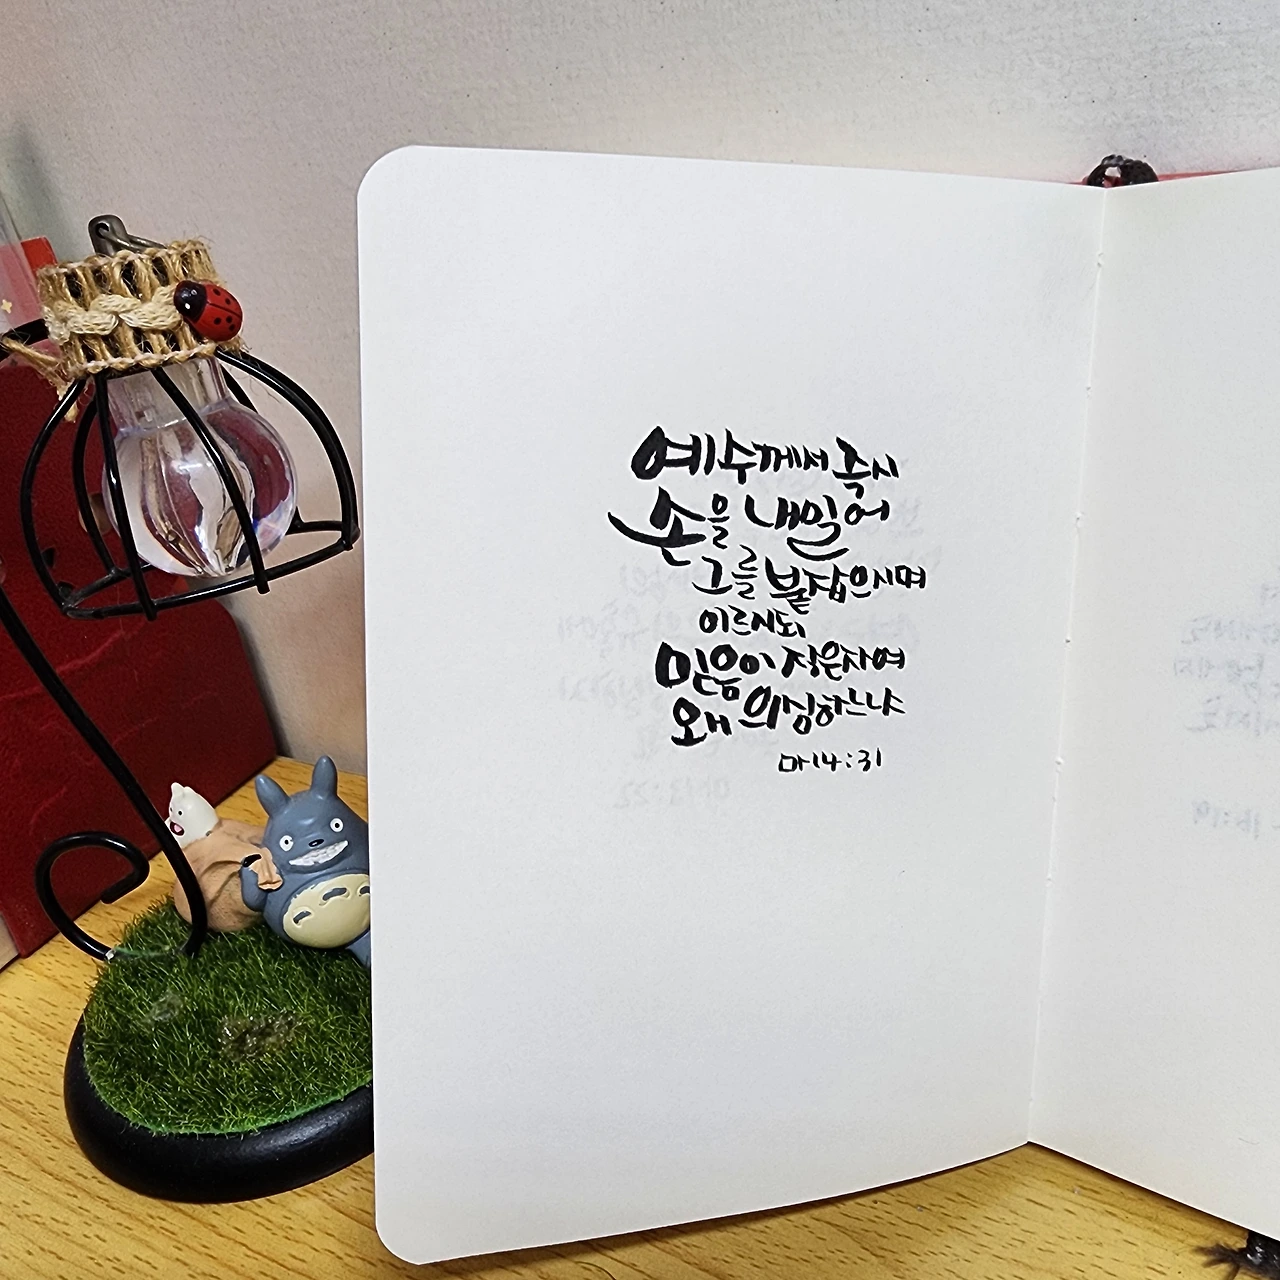 예수께서 즉시
손을 내밀어
그를 붙잡으시며
이르시되
믿음이 적은자여
왜 의심하느냐
마14:31